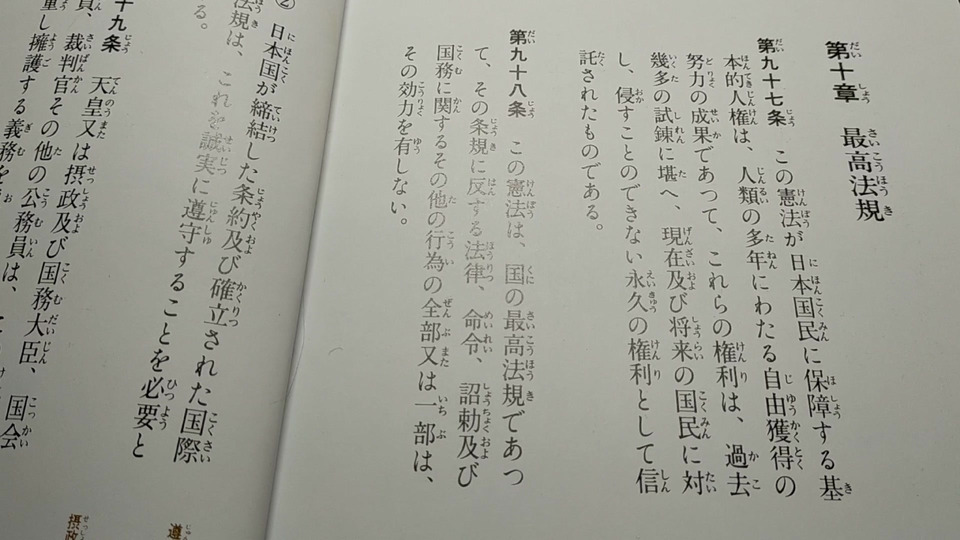 第十章 最高法規
第九十七条 この憲法が日本国民に保障する基
本的人権は、人類の多年にわたる自由獲得の
努力の成果であって、これらの権利は、過去
幾多の試錬に堪へ、現在及び将来の国民に対
し、侵すことのできない永久の権利として信
託されたものである。
第九十八条 この憲法は、国の最高法規であつ
て、その条規に反する法律、命令、詔勅及び
国務に関するその他の行為の全部又は一部は、
その効力を有しない。
② 日本国が締結した条約及び確立された国際
法規は、これを誠実に遵守することを必要と
る。
十九条 天皇又は摂政及び国務大臣、国会
員、裁判官その他の公務員は、
重し擁護する義務を
遵
摂政